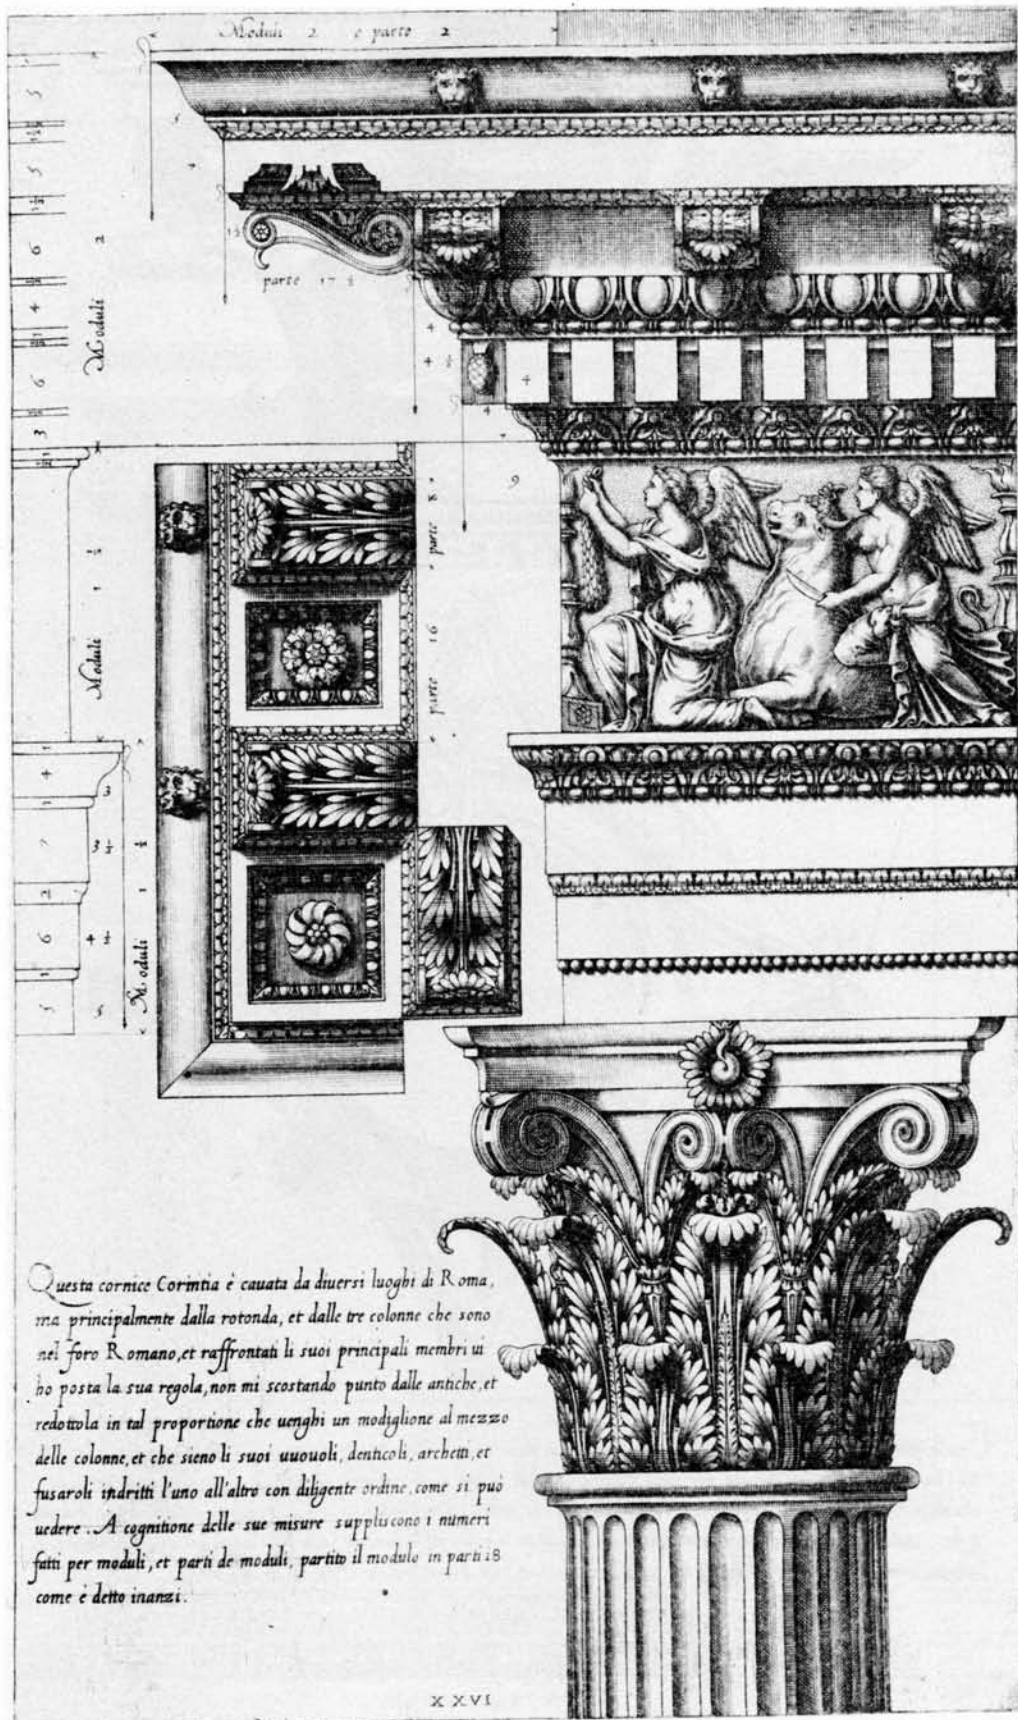 Moduli 2 e parte 2
5
1 ½
5
1 ½
6
4
6
3
Moduli 2
5
4
1 ½
parte 17 ½
4
4 ½
4
4
9
parte 8
parte 16
Moduli 1 ½
1
4
1
7
2
6
1
5
3
3 ½
4 ½
5
Moduli 1 ½
Questa cornice Corintia è cauata da diuersi luoghi di Roma,
ma principalmente dalla rotonda, et dalle tre colonne che sono
nel foro Romano, et raffrontati li suoi principali membri ui
ho posta la sua regola, non mi scostando punto dalle antiche, et
redottola in tal proportione che uenghi un modiglione al mezzo
delle colonne, et che sieno li suoi uuouoli, denticoli, archetti, et
fusaroli indritti l'uno all'altro con diligente ordine, come si può
uedere. A cognitione delle sue misure suppliscono i numeri
fatti per moduli, et parti de moduli, partito il modulo in parti 18
come è detto inanzi.
XXVI